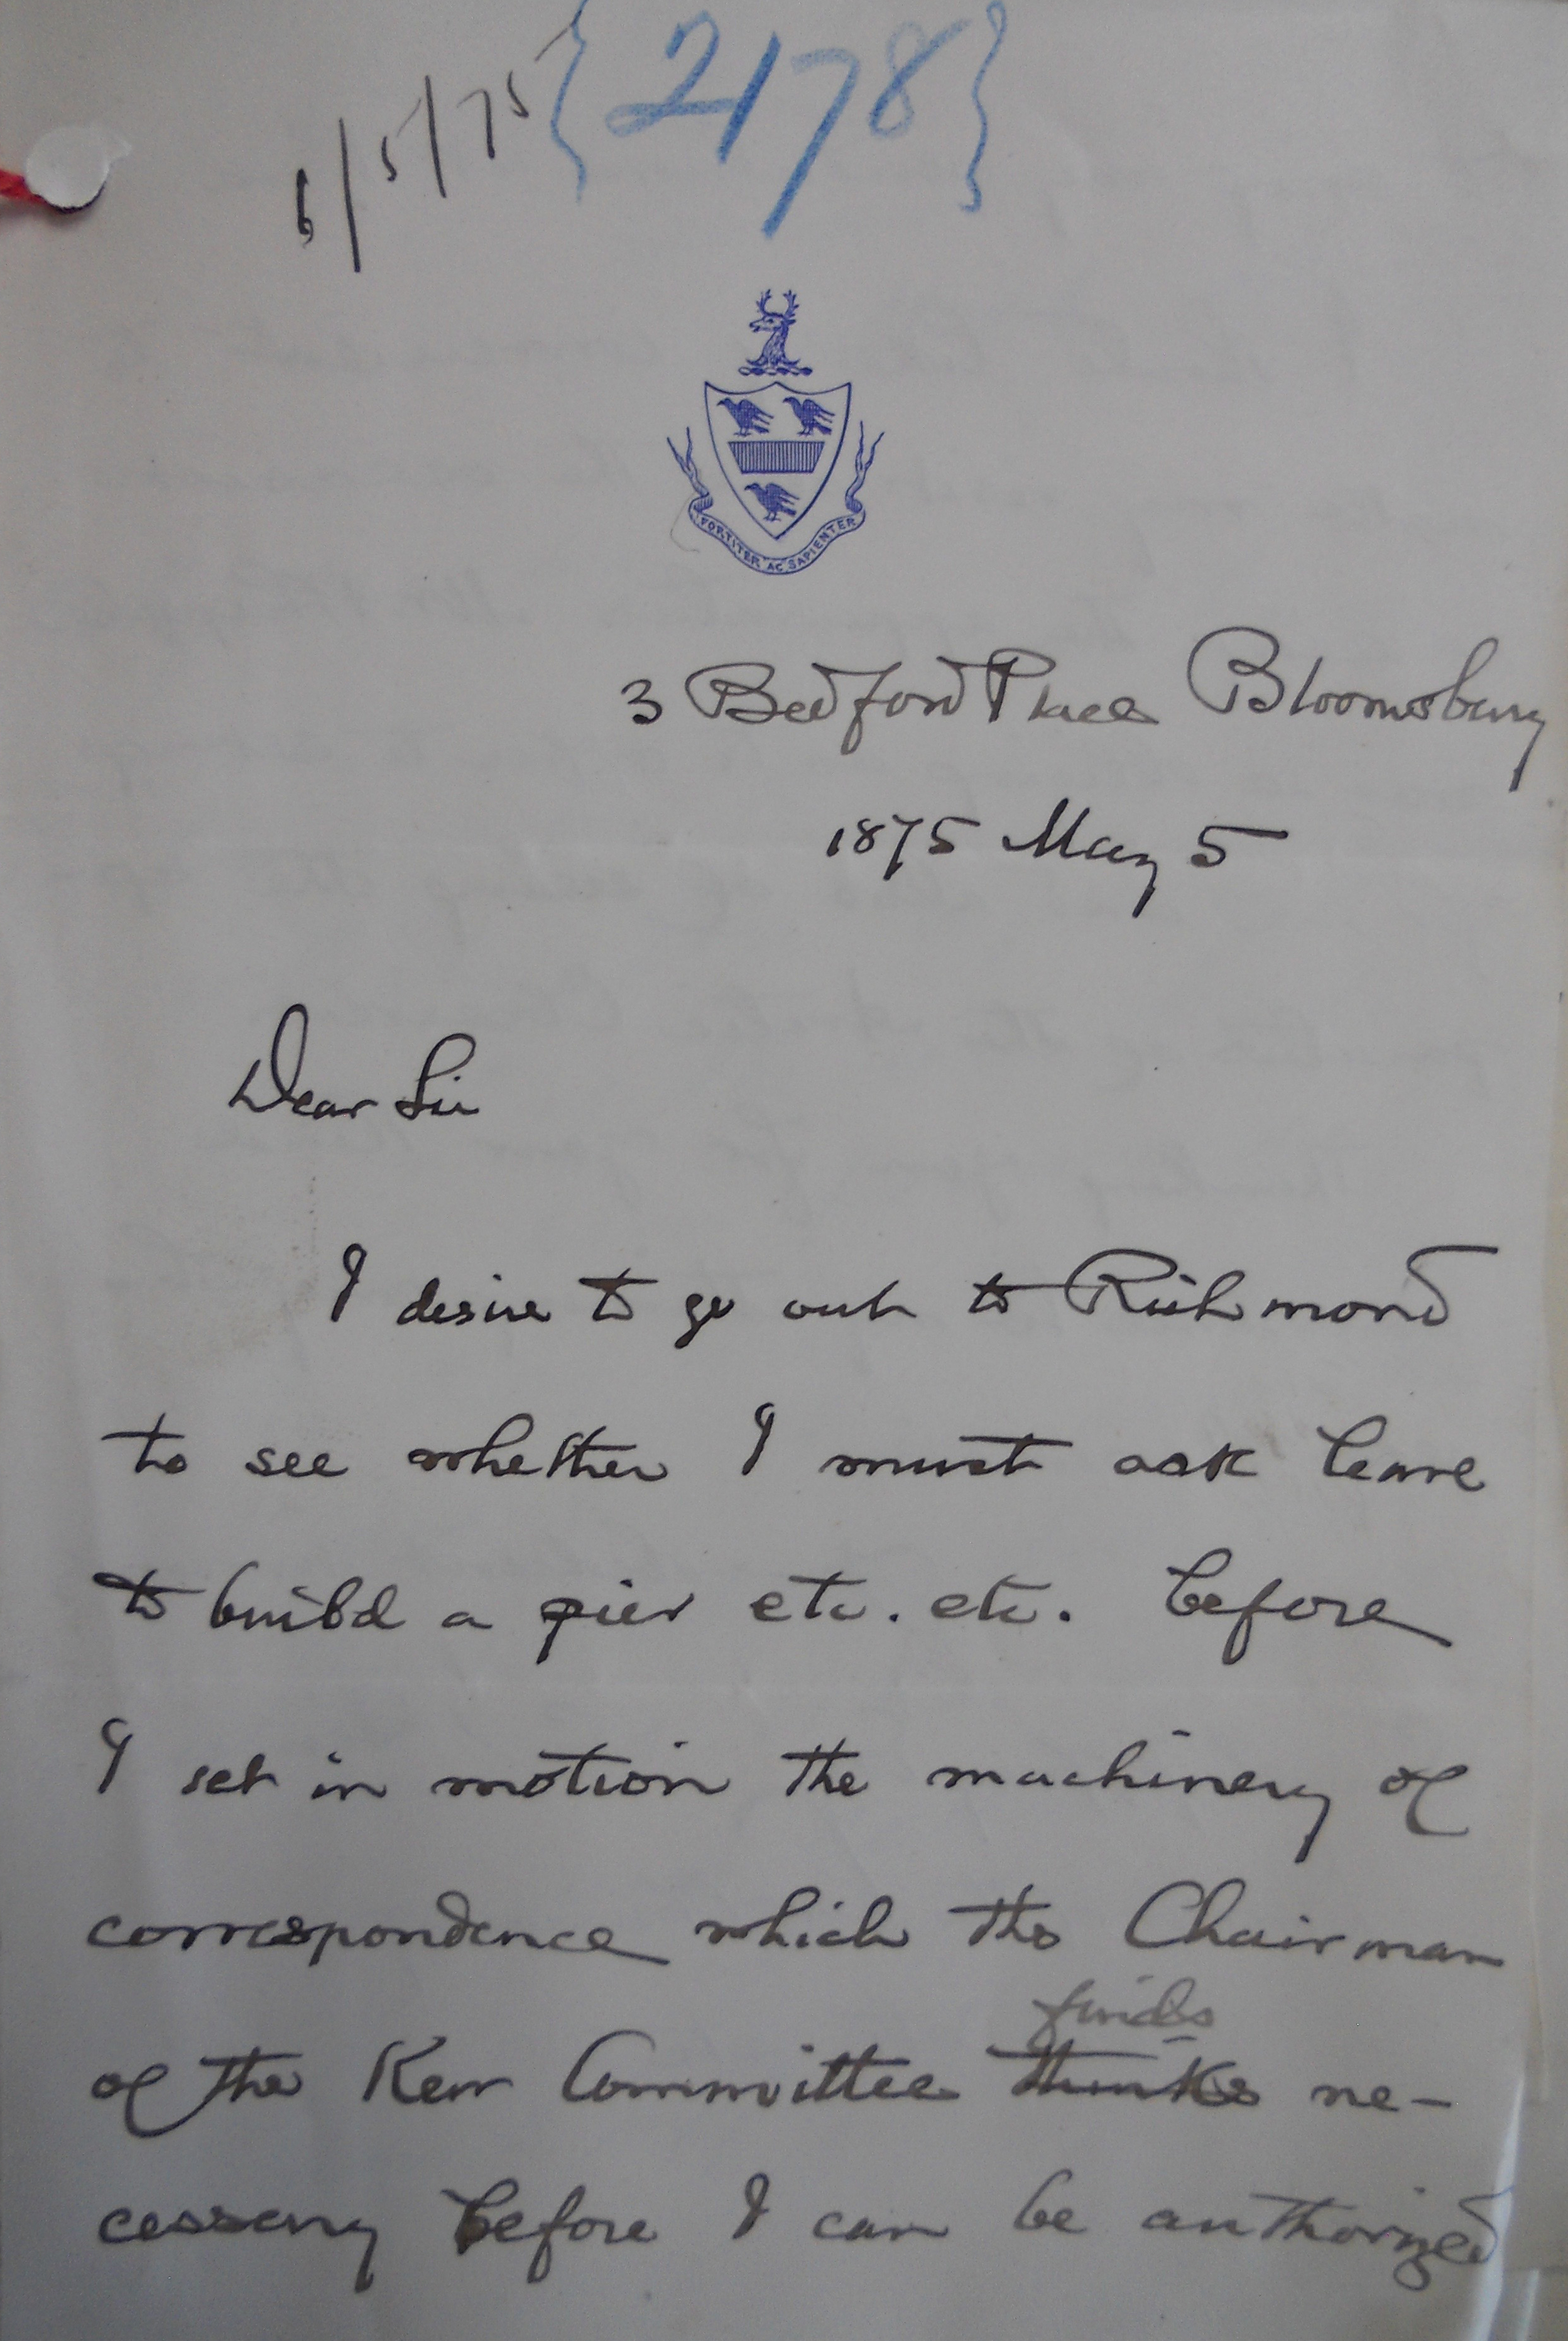 6/5/75 {2178}
FORTITER AC SAPIENTER
3 Bedford Place Bloomsbury
1875 May 5
Dear Sir
I desire to go out to Richmond
to see whether I must ask leave
to build a pier etc. etc. before
I set in motion the machinery of
correspondence which the Chairman
finds
of the Kew Committee thinks ne-
cessary before I can be authorized